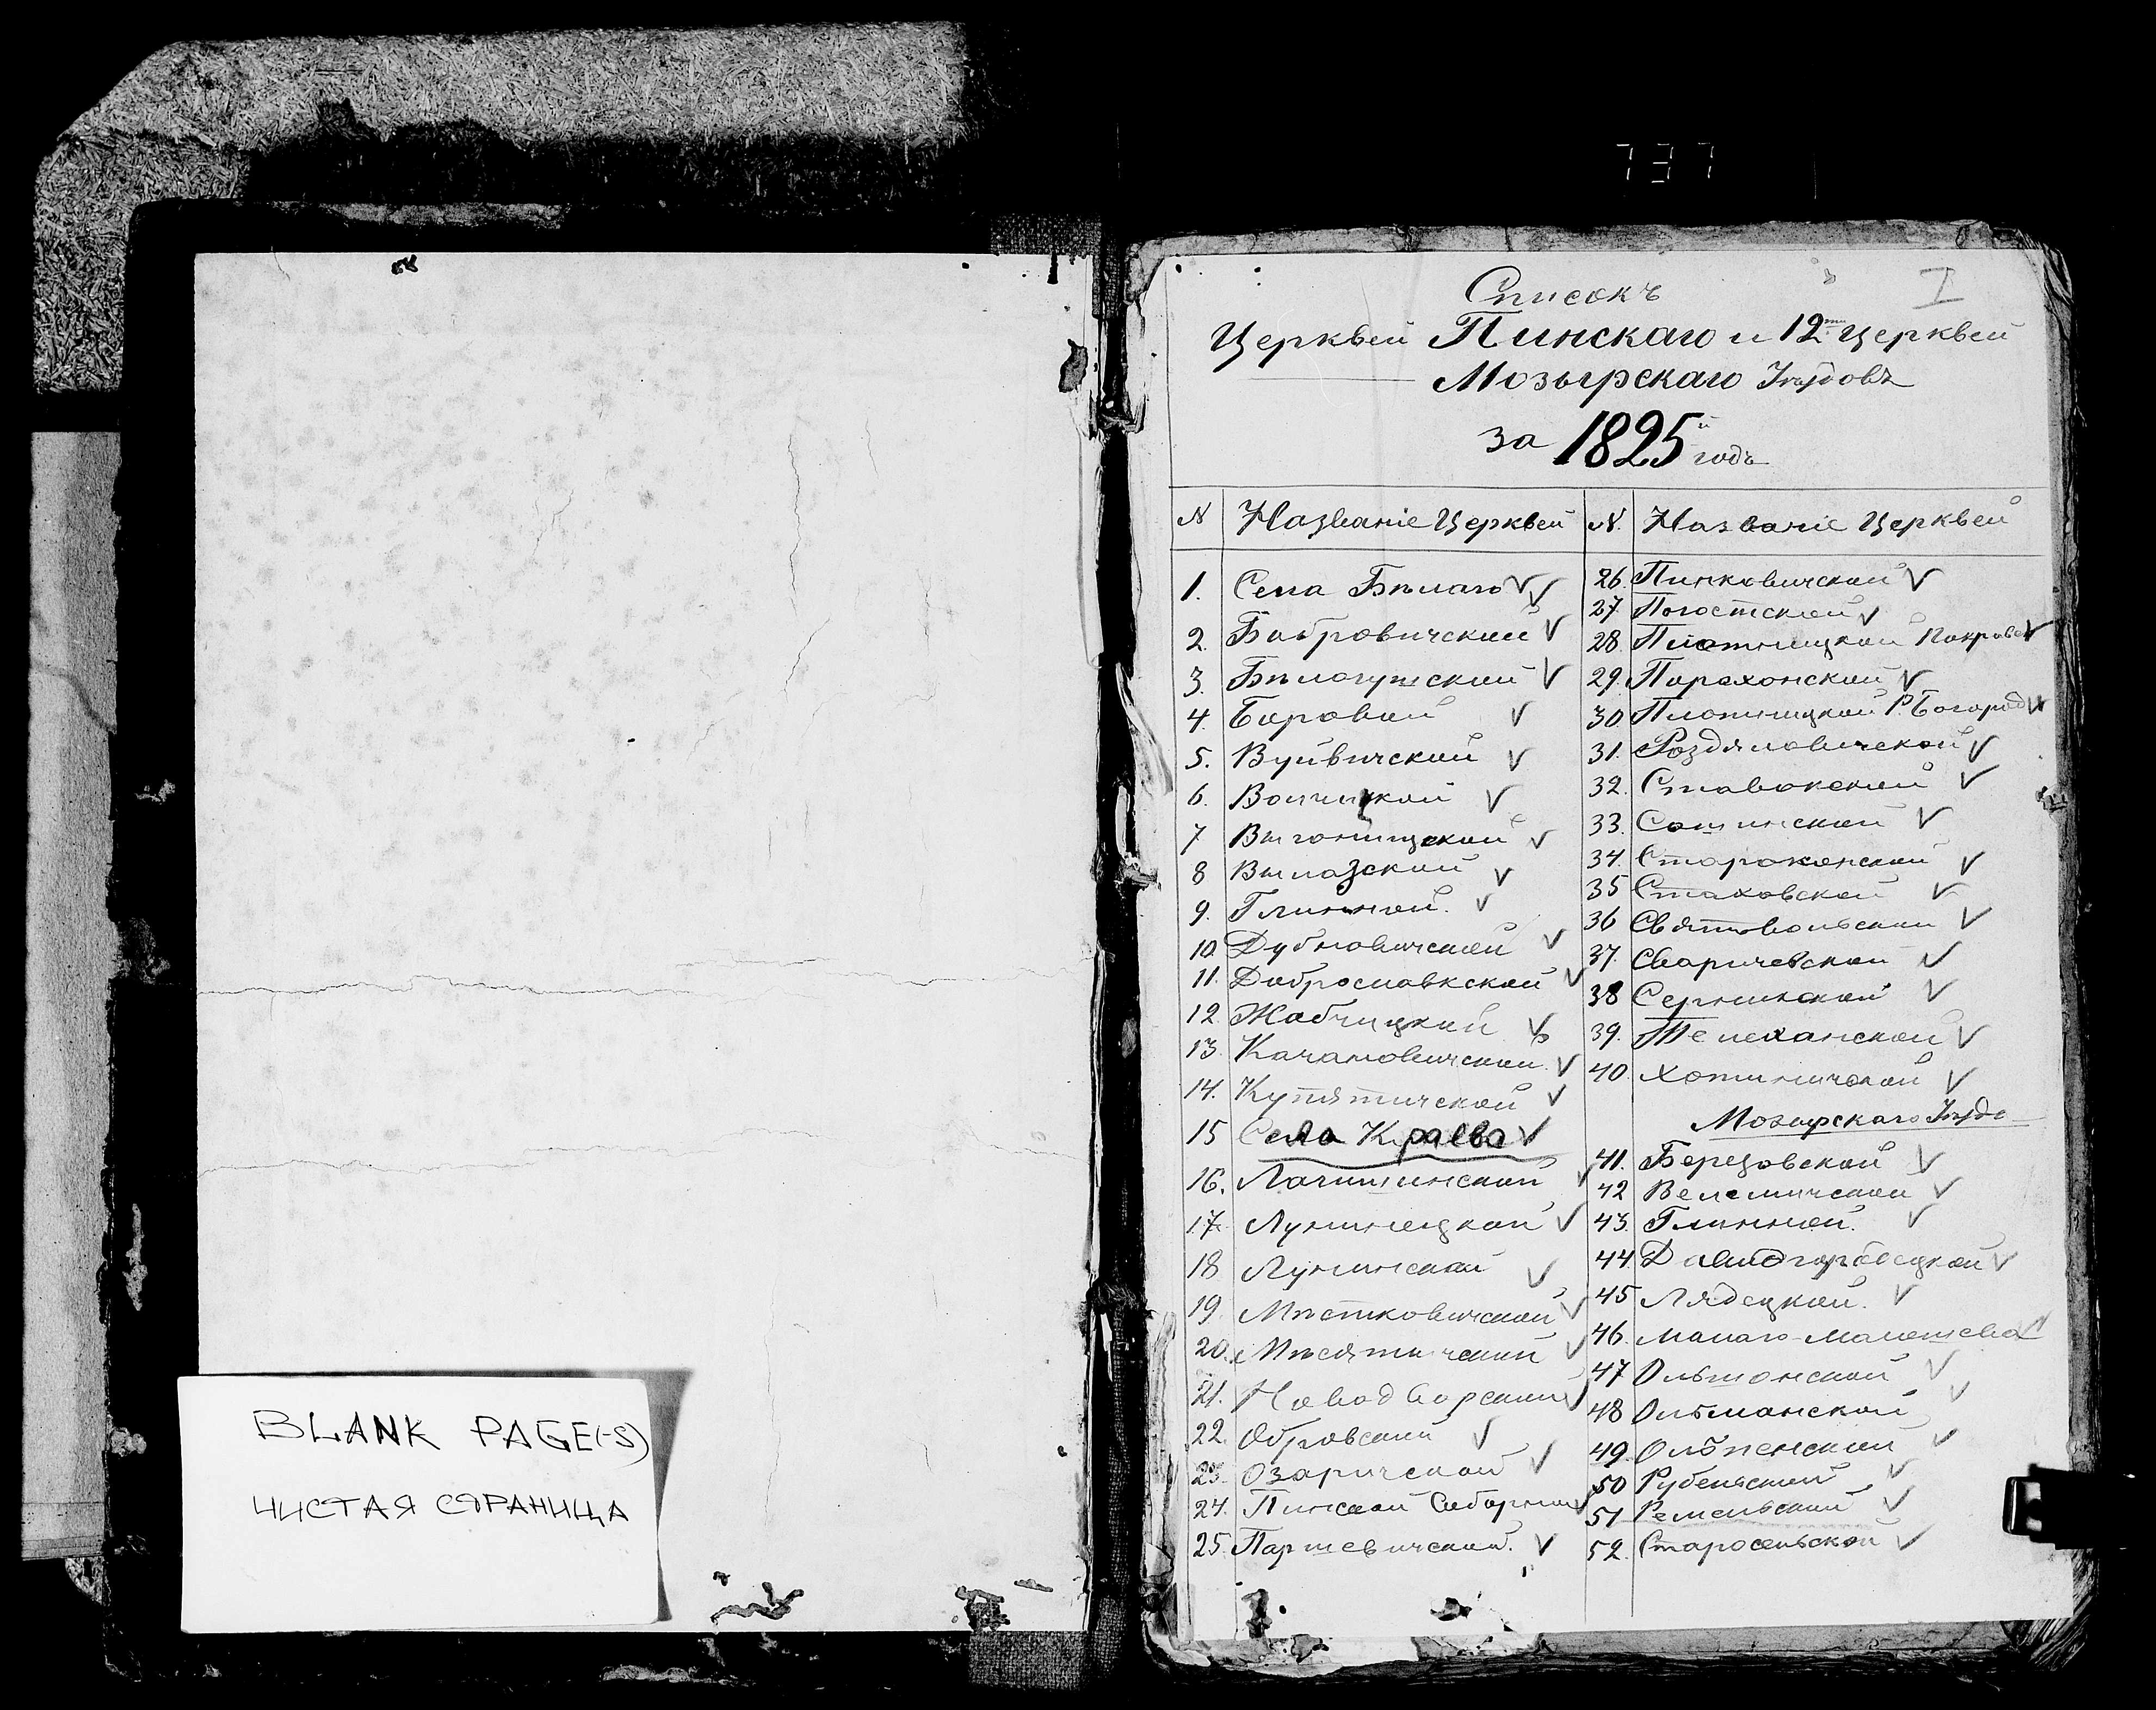 737
I
Списокъ
Церквей Пинскаго и 12ти церквей
Мозырскаго Уѣздовъ
за 1825й годъ
N Названіе Церквей
1. Села Бѣлаго
2. Бобровичской
3. Бѣлогушской
4. Боровой
5. Вуйвичской
6. Волчицкой
7 Выгонищской
8 Вылазской
9. Глинной.
10. Дубновичской
11. Доброславкской
12. Жабчицкой
13. Качановичской.
14. Купятичской
15 Села Краева
16. Логишинской
17. Лунинецкой
18 Лунинской
19. Мѣстковичской
20. Мѣсятичской
21. Новодворской
22. Обровской
23. Озаричской
24. Пинской Соборной
25. Паршевичской.
N. Названіе Церквей
26. Пинковичской
27. Погостской
28. Плотницкой Покров
29. Парахонской
30. Плотницкой Р. Богород
31. Роздяловичской
32. Ставокской
33. Сошинской
34. Староконской
35 Стаховской
36 Святовольской
37. Сваричевской
38 Серникской
39. Телеханской
40. Хотыничской
Мозырскаго Уѣзда
41. Березовской
42 Велемичской
43. Глинной.
44. Давидгородецкой
45 Лядецкой.
46. Малаго-Малешева
47 Ольшонской
48 Ольманской
49. Олпенской
50 Рубельской
51 Ремельской
52. Старосельской
BLANK PAGE(-S)
ЧИСТАЯ СТРАНИЦА